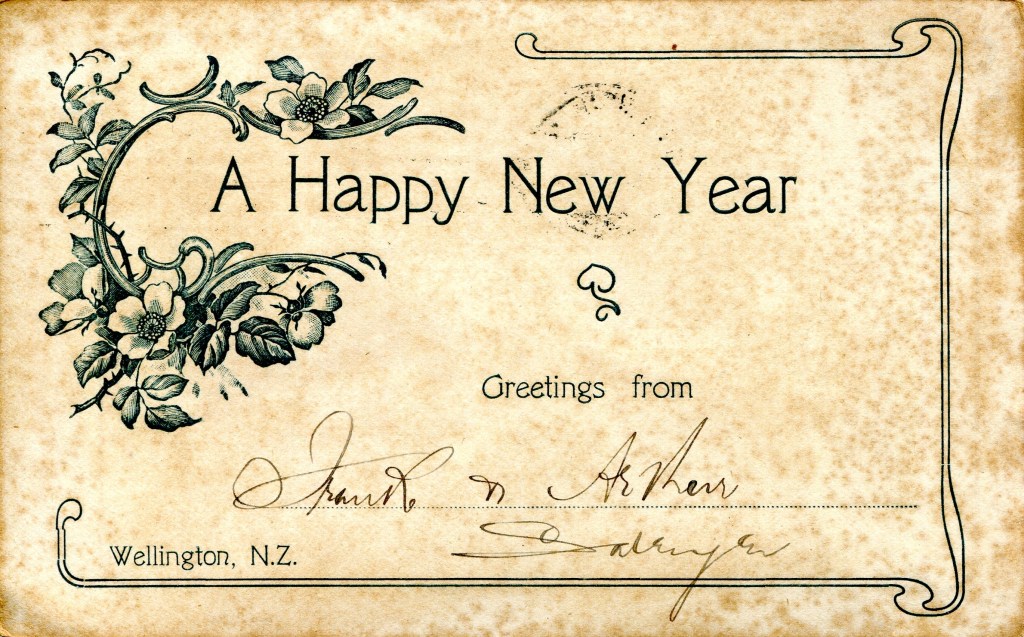 A Happy New Year
Greetings from
Frank & Arthur
Wellington, N.Z.